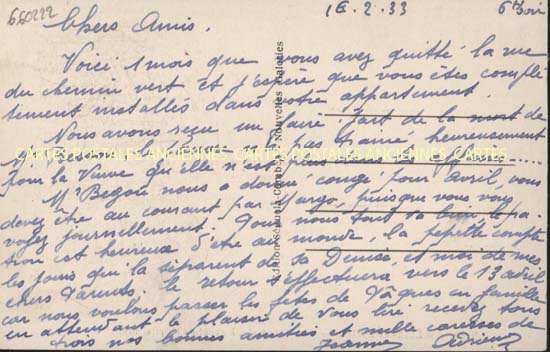 660222
16.2.33
Chers Amis.
Voici 1 mois que vous avez quitté la rue
du chemin vert et j'espère que vous êtes complè
tement installés dans votre appartement.
Nous avons reçu un faire-part de la mort de
heureusement
CARTES POSTALES ANCIENNES CARTES POSTALES ANCIENNES CARTES POSTALES ANCIENNES
pour la Veuve qu'elle n'est pas
Mr Begou nous a donné "congé" pour avril, vous
devez être au courant par Margo, puisque vous vous
voyez journellement. Pour nous tout va bien, le pa
tron est heureux d'être au monde, la pépette compte
les jours qui la séparent de sa Denise, et moi de mes
chers Parents. Le retour s'effectuera vers le 13 avril
car nous voulons passer les fêtes de Pâques en famille
en attendant le plaisir de vous lire recevez tous
trois nos bonnes amitiés et mille caresses de
Jeanne Adrien